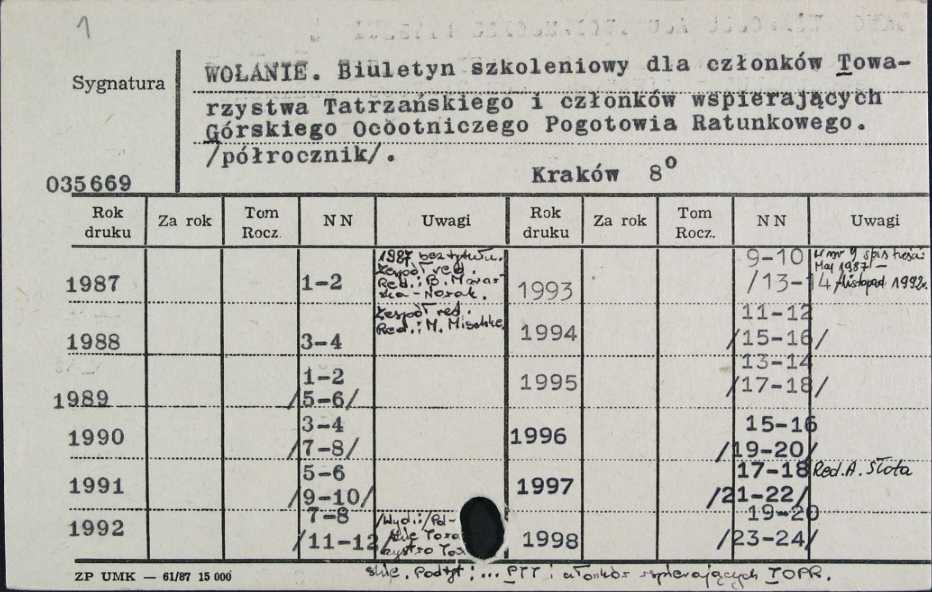 1
Sygnatura
WOŁANIE. Biuletyn szkoleniowy dla członków Towa-
rzystwa Tatrzańskiego i członków wspierających
Górskiego Ocootniczego Pogotowia Ratunkowego.
/półrocznik/.
Kraków 8º
035669
Rok druku Za rok Tom Rocz. NN Uwagi Rok druku Za rok Tom Rocz. NN Uwagi
1987 1-2 1987 bez tytułu. Zespół red. Red.: B. 1993 9-10 /13-14 w nr 9 spis treści Maj 1987 - listopad 1992r.
1988 3-4 Zespół red. Red.: M. 1994 11-12 /15-16/
1989 1-2 /5-6/ 1995 13-14 /17-18/
1990 3-4 /7-8/ 1996 15-16 /19-20/
1991 5-6 /9-10/ 1997 17-18 /21-22/ Red. A. Słota
1992 7-8 /11-12/ /Wyd.:/ Pol- 1998 19-20 /23-24/
skie. Podtyt.: ... PTT i członków wspierających TOPR.
ZP UMK — 61/87 15 000